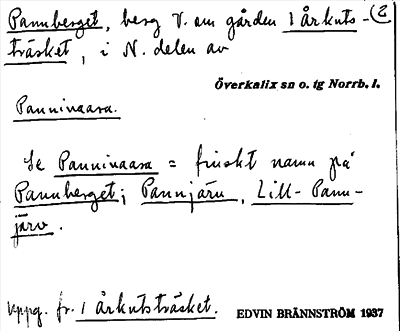 Pannberget, berg V. om gården 1 Årkuts- (2
träsket, i N. delen av
Överkalix sn o. tg Norrb. l.
Pannivaara.
Se Pannivaara = finskt namn på
Pannberget; Pannjärv, Lill-Pann-
järv.
uppg. fr. 1 Årkutsträsket. EDVIN BRÄNNSTRÖM 1937